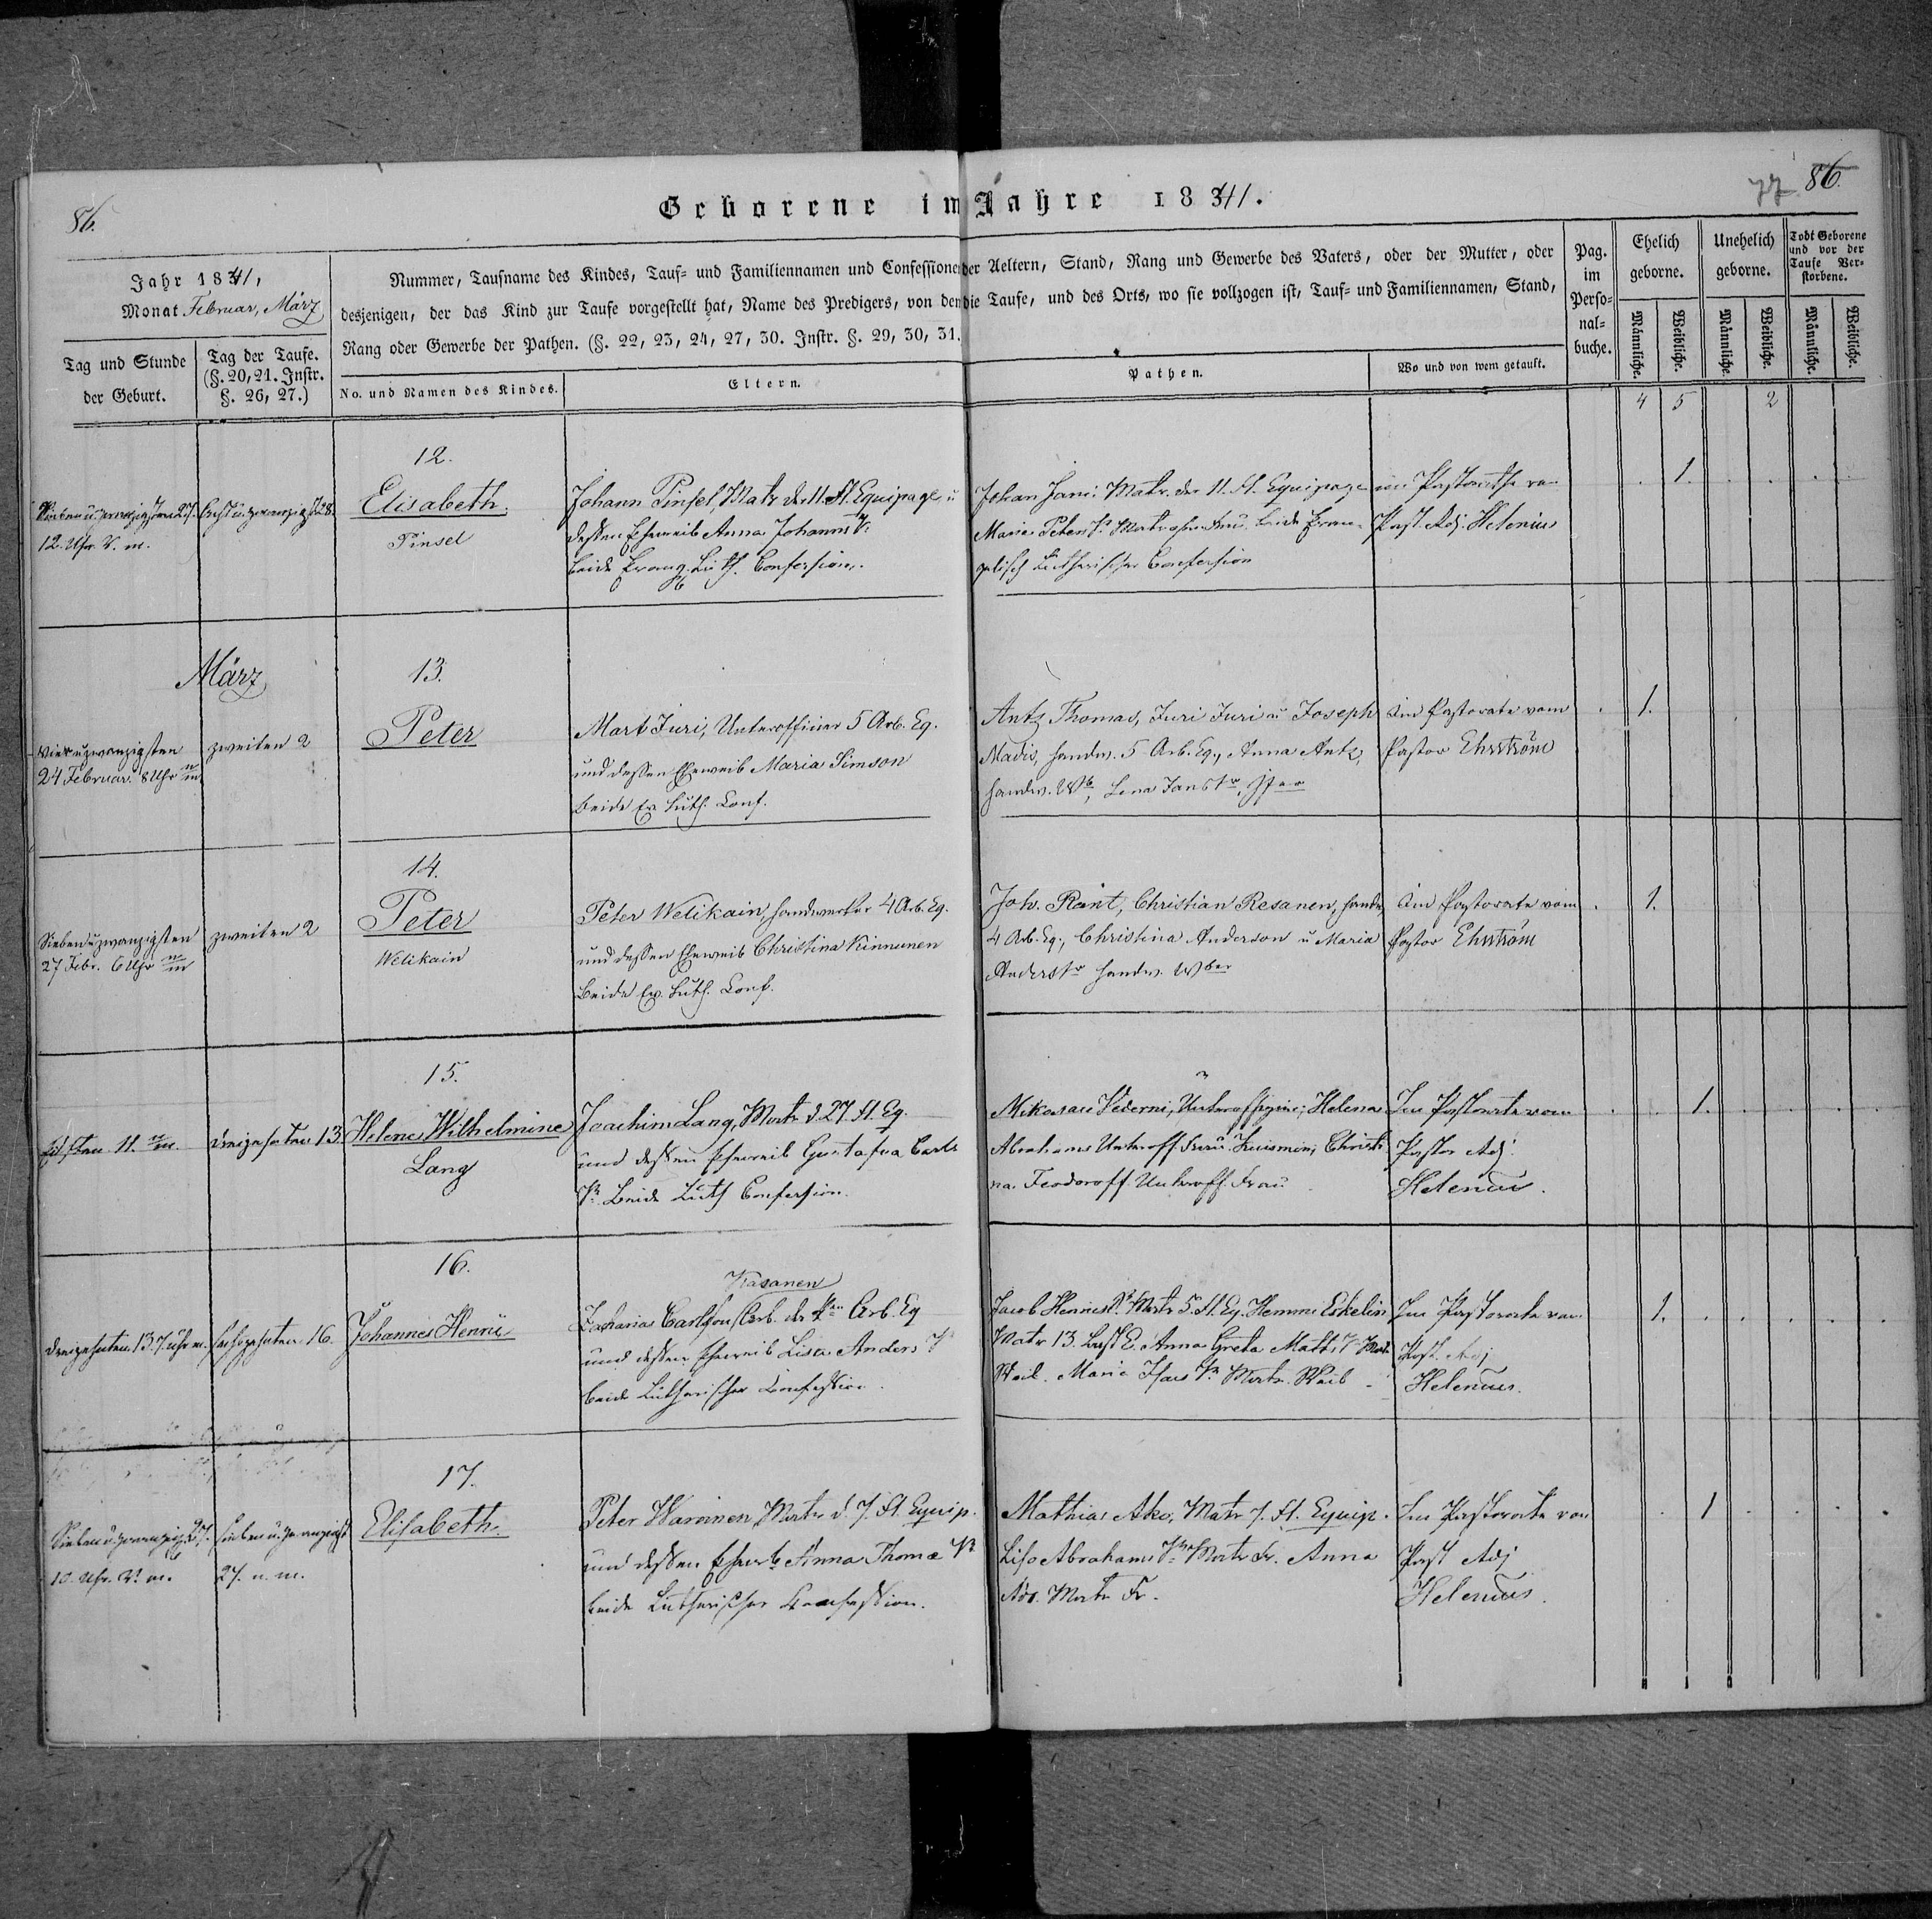 86.
77 86.
Geborene im Jahre 1841.
Jahr 1841,
Monat Februar, März
Nummer, Taufname des Kindes, Tauf- und Familiennamen und Confessionen der Aeltern, Stand, Rang und Gewerbe des Vaters, oder der Mutter, oder
desjenigen, der das Kind zur Taufe vorgestellt hat, Name des Predigers, von dem die Taufe, und des Orts, wo sie vollzogen ist, Tauf- und Familiennamen, Stand,
Rang oder Gewerbe der Pathen. (§. 22, 23, 24, 27, 30. Instr. §. 29, 30, 31.
Pag.
im
Perso-
nal-
buche.
Ehelich
geborne.
Unehelich
geborne.
Todt Geborene
und vor der
Taufe Ver-
storbene.
Männliche.
Weibliche.
Männliche.
Weibliche.
Männliche.
Weibliche.
Tag und Stunde
der Geburt.
Tag der Taufe.
(§. 20, 21. Instr.
§. 26, 27.)
No. und Namen des Kindes.
Eltern.
Pathen.
Wo und von wem getauft.
4 5 2
12.
Sieben u. zwanzigsten 27.
12. Uhr V. m.
Acht u. zwanzigst 28.
Elisabeth.
Pinsel
Johann Pinsel, Matr. der 11. fl. Equipage u
dessen Eheweib Anna Johanns Tr.
beide Evang. Luth. Confession.
Johan Jani Matr. der 11. fl. Equipage
Maria Peters Tr. Matrosen Frau. beide Evan-
gelisch Lutherischer Confession
im Pastorathe von
Past. Adj. Helenius
1.
März
13.
Vierundzwanzigsten
24 Februar 8 Uhr
zweiten 2
Peter
Mart Juri, Unterofficier 5 Arb. Eq.
und dessen Eheweib Maria Simson
beide Ev. Luth. Conf.
Antz Thomas, Juri Juri u Joseph
Madis, Handw. 5 Arb. Eq., Anna Antz,
Handw. Wb, Lena Jans Tr.
Im Pastorate vom
Pastor Ehrström
1.
14.
Siebenundzwanzigsten
27 Febr. 6 Uhr
zweiten 2
Peter
Welikain
Peter Welikain, Handwerker 4 Arb. Eq.
und dessen Eheweib Christina Kinnunen
beide Ev. Luth. Conf.
Joh. Ränt, Christian Resanen, Handw.
4 Arb. Eq., Christina Anderson u Maria
Anders Tr Handw. Wber
Im Pastorate vom
Pastor Ehrström
1.
15.
Elften 11.
dreizehnten 13
Helene Wilhelmine
Lang
Joachim Lang, Matr. d. 27. fl. Eq.
und dessen Eheweib Gustafva Carls
Tr. Beide Luth Confession.
Unteroffizier; Helena
Abrahams Unteroff. Frau Kuismin; Christi-
na Feodoroff Unteroff. Frau
Im Pastorate vom
Pastor Adj.
Helenius.
1.
16.
dreizehnten 13. 7. uhr m.
sechszehnten 16.
Johannes Henric
Kasanen
Zacharias Carlson, Arb. der Arb. Eq
und dessen Eheweib Lisa Anders Tr
beide Lutherischer Confession.
Jacob Matr. 5. fl. Eq. Hemmi Eskelin
Matr 13. E. Anna Greta Matts Tr. Matr
Weib. Maria Tr. Matr. Weib
Im Pastorate von
Past. Adj
Helenius.
1.
17.
Sieben u. zwanzigst 27.
10. Uhr. V. m.
sieben u. zwanzigst
27. n. m.
Elisabeth.
Peter Waroinen, Matr. d. 7. fl. Equip.
und dessen Eheweib Anna Thomæ Tr
beide Lutherischer Confession.
Mathias Ako, Matr 7. fl. Equip.
Lisa Abrahams Tr. Matr. Fr. Anna
Matr Fr.
Im Pastorate von
Past Adj
Helenius.
1